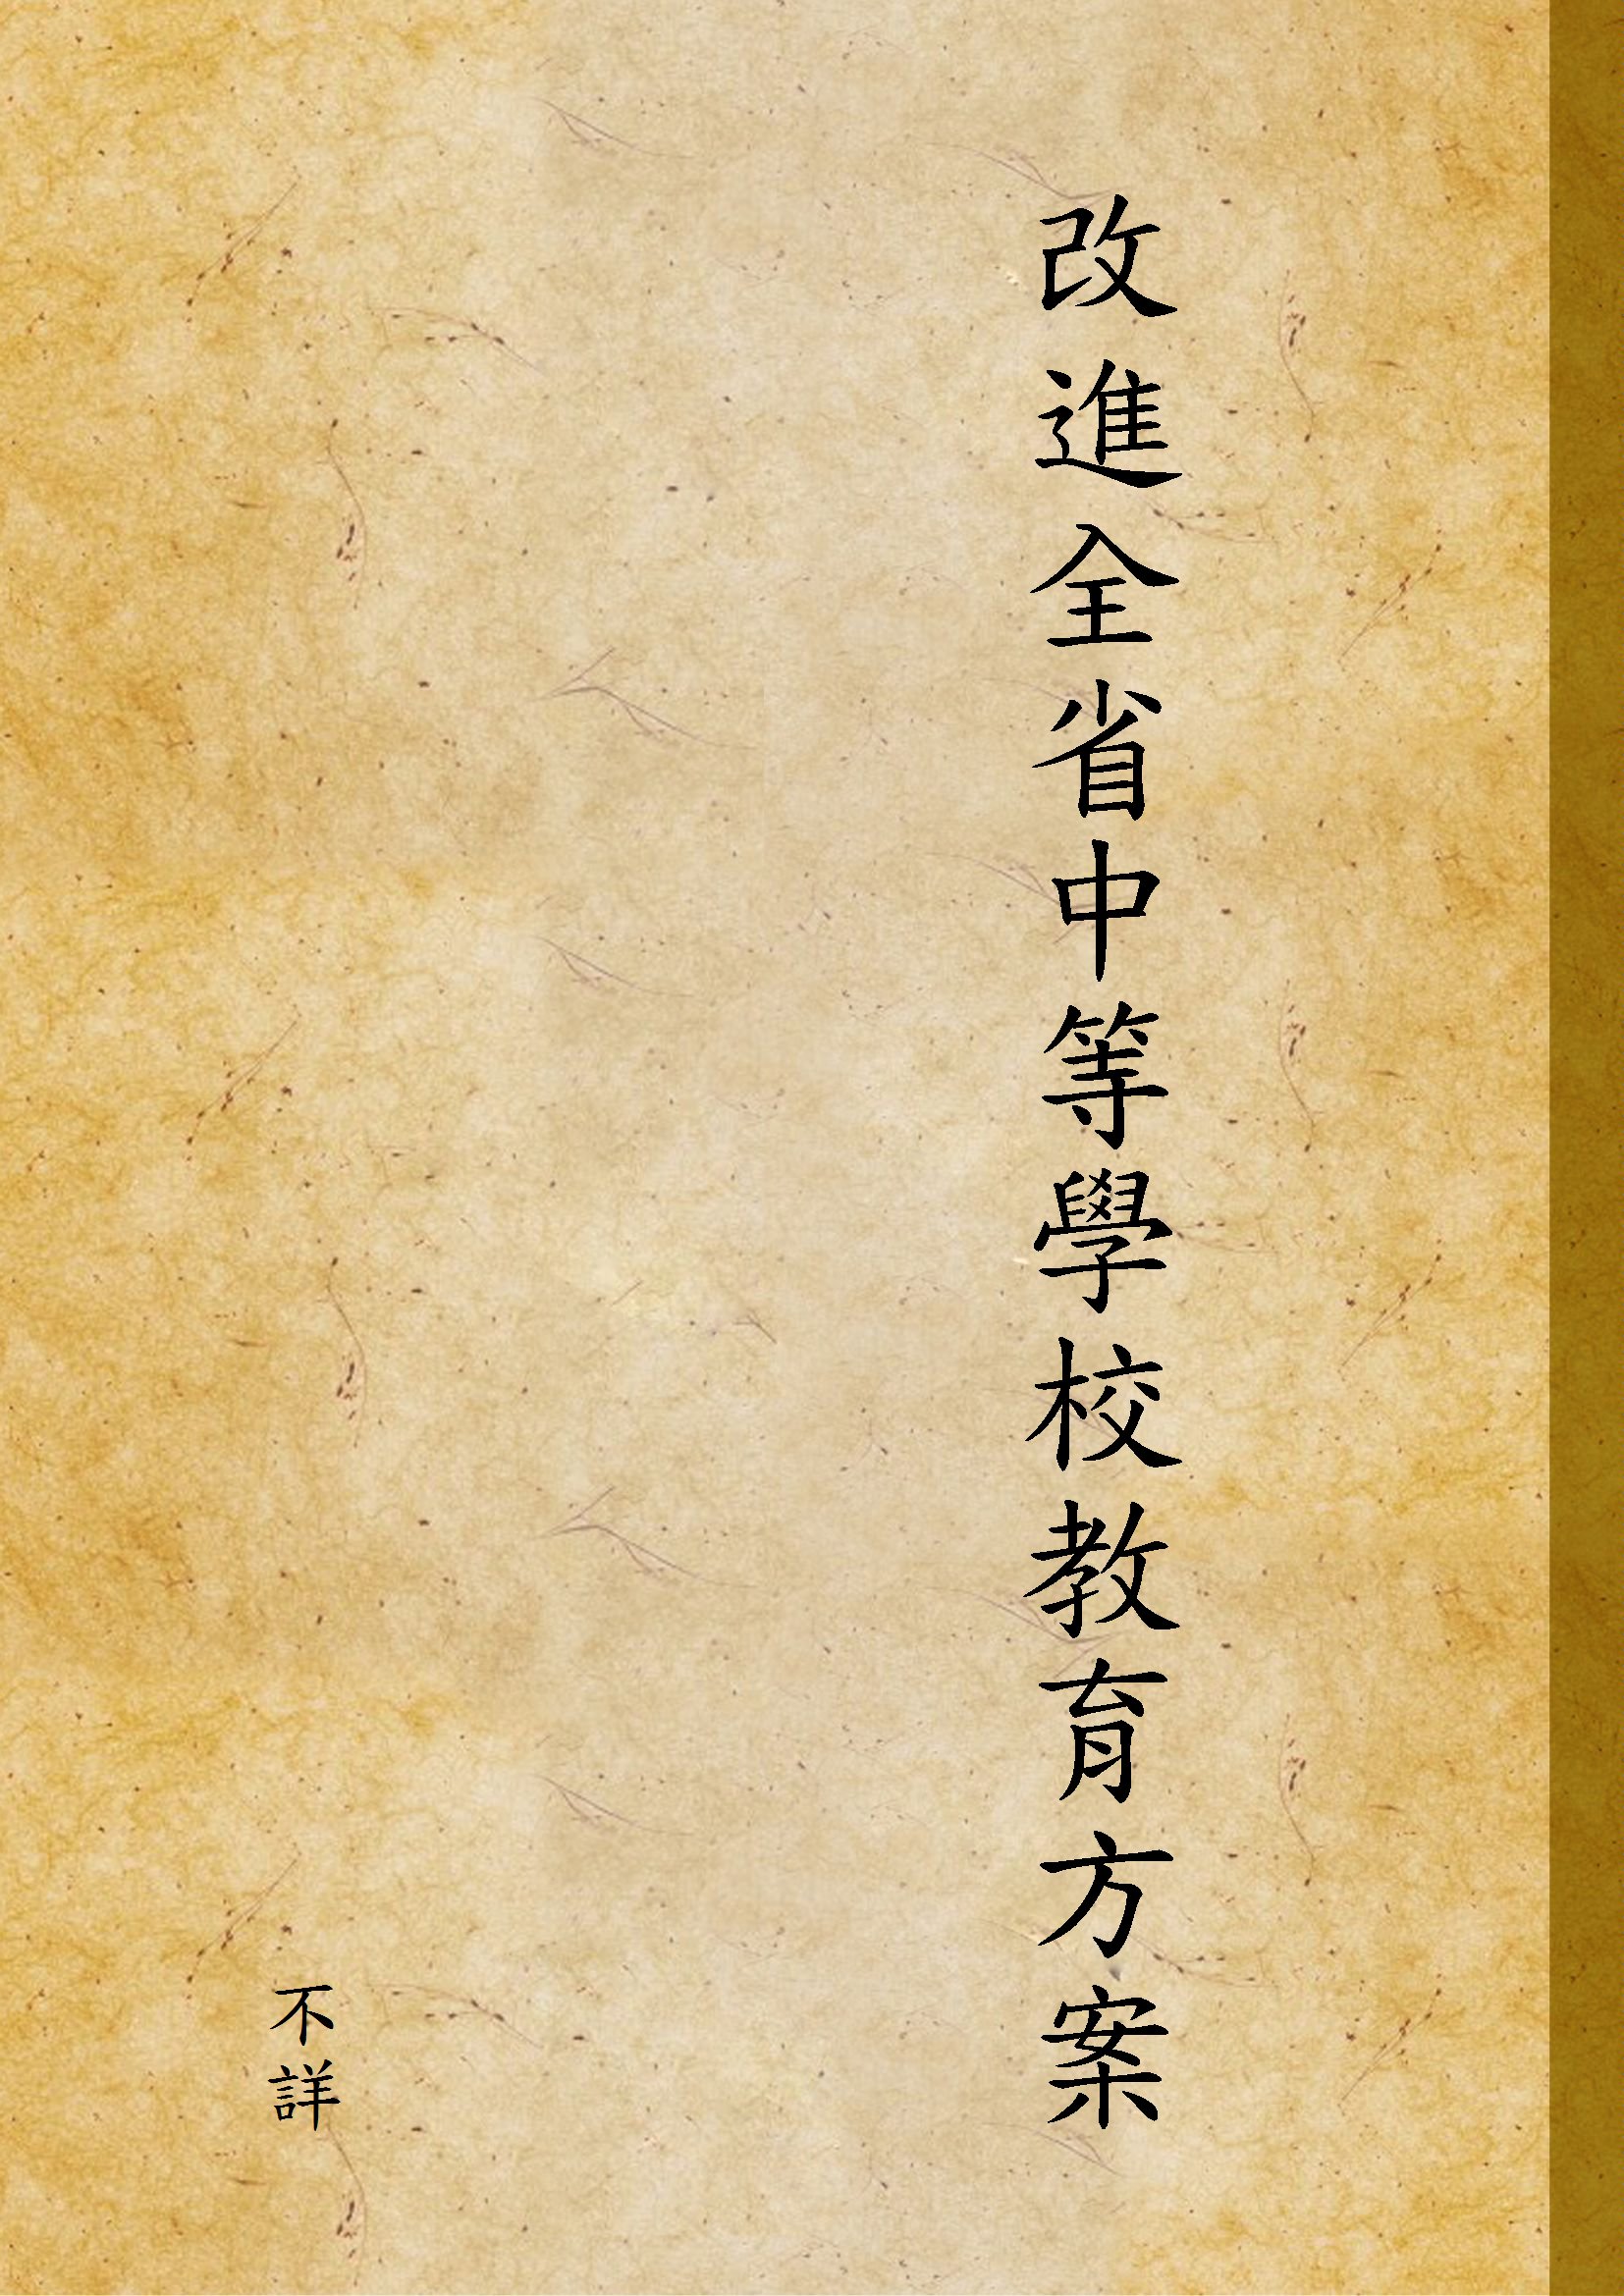 改進全省中等學校教育方案
不詳